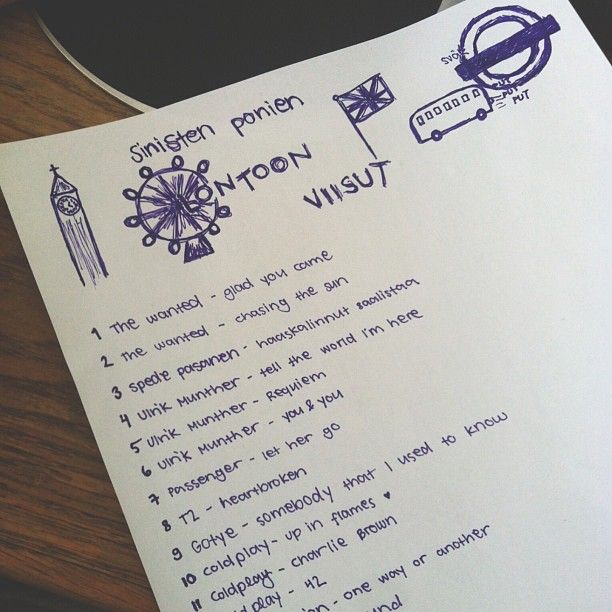 sinisten ponien
LONTOON
VIISUT
PUT
PUT
1 The wanted - glad you came
2 the wanted - chasing the sun
3 spede pasanen - haaskalinnut saalistaa
4 Ulrik Munther - tell the world i'm here
5 Ulrik Munther - Requiem
6 Ulrik Munther - you & you
7 Passenger - let her go
8 T2 - heartbroken
9 Gotye - somebody that I used to know
10 coldplay - up in flames ♥
11 coldplay - charlie Brown
play - 42
- one way or another